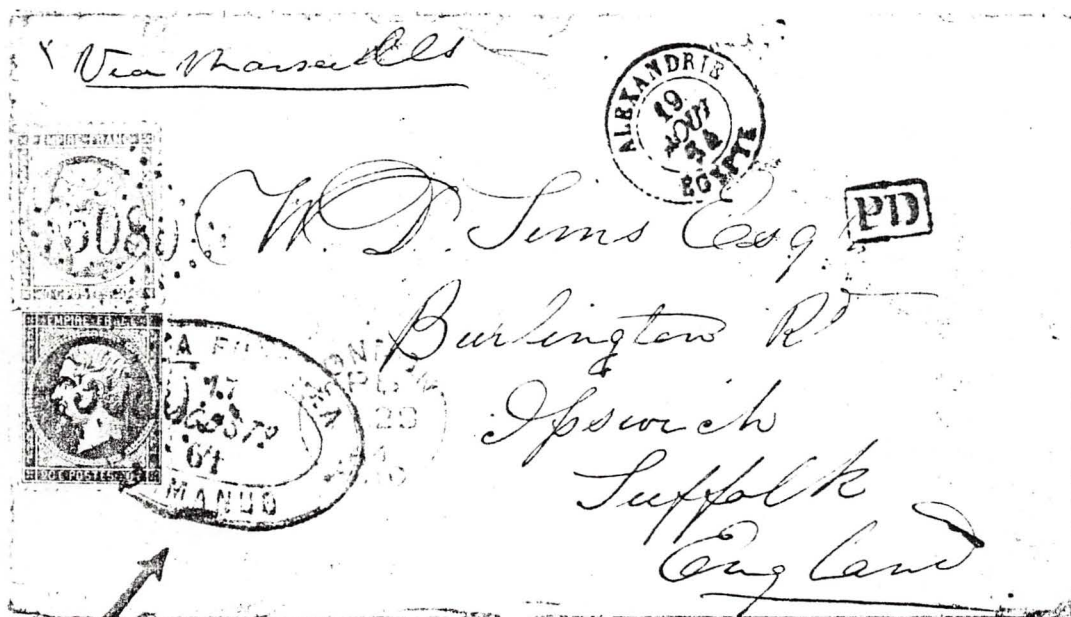 Via Marseilles
ALEXANDRIE
19
AOUT
64
EGYPTE
PD
EMPIRE FRANC
5080
W. D. Sims Esqr
Burlington Rd
Ipswich
Suffolk
England
EMPIRE FRANC
POSTES
17
AGOSTO
64
LONDON
20